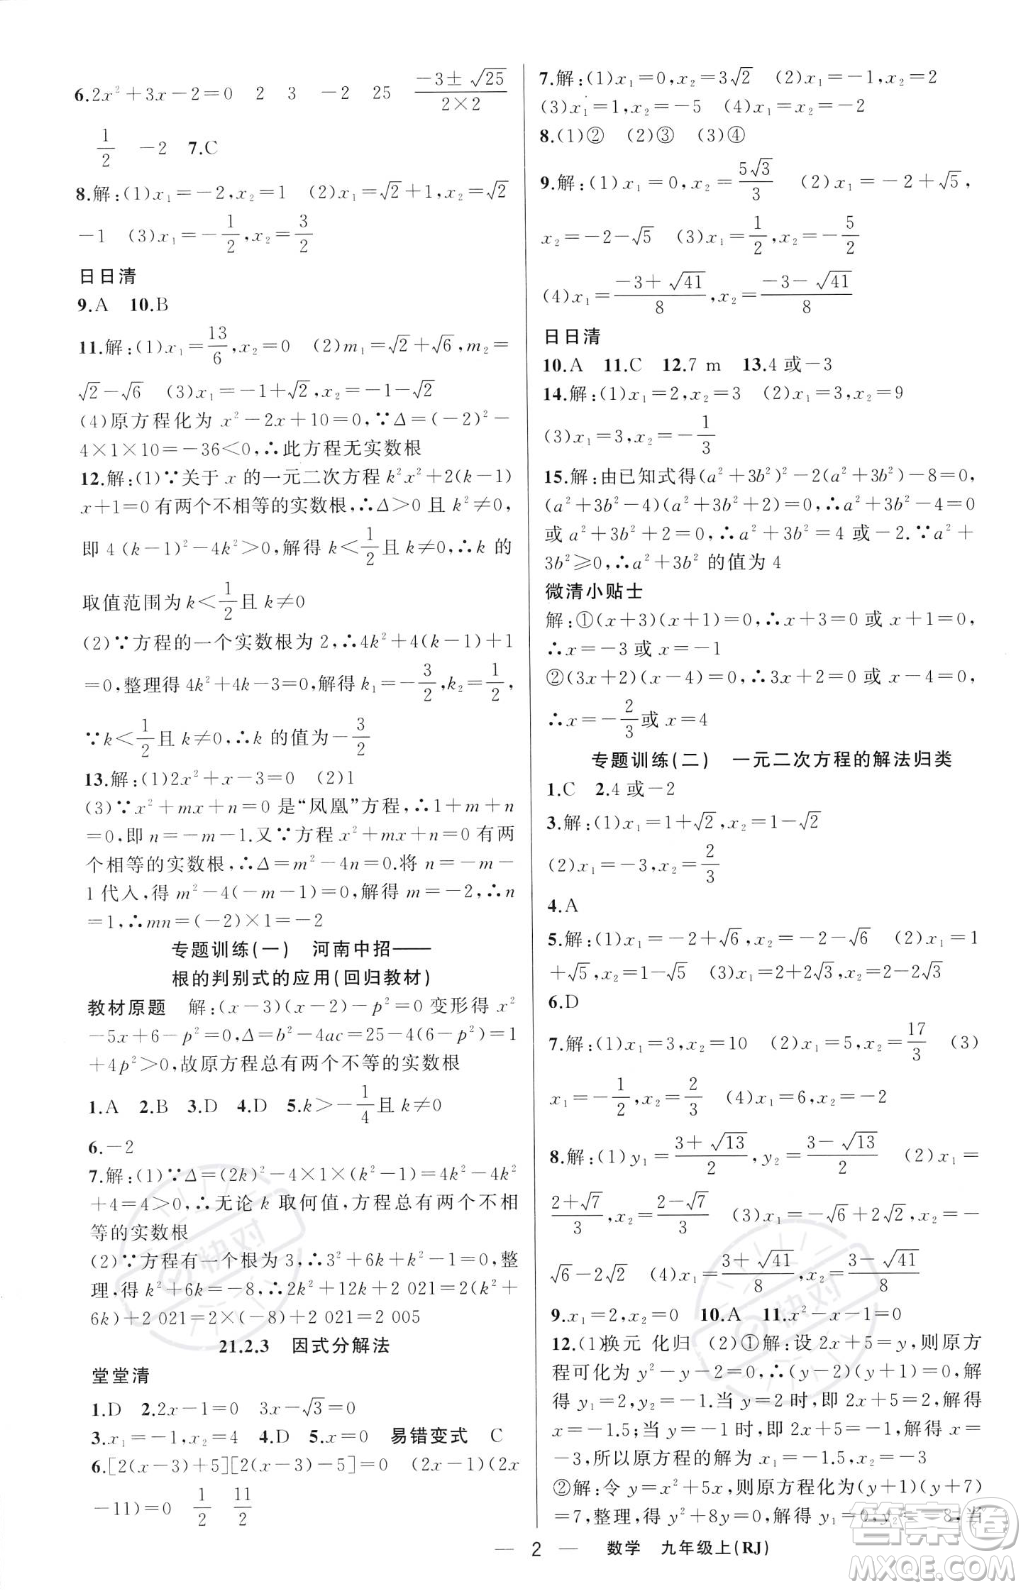 6.2x²+3x-2=0 2 3 -2 25 (-3±√25)/(2×2)
1/2 -2 7.C
8.解:(1)x₁=-2,x₂=1 (2)x₁=√2+1,x₂=√2
-1 (3)x₁=-1/2,x₂=3/2
日日清
9.A 10.B
11.解:(1)x₁=13/6,x₂=0 (2)m₁=√2+√6,m₂=
√2-√6 (3)x₁=-1+√2,x₂=-1-√2
(4)原方程化为 x²-2x+10=0,∵Δ=(-2)²-
4×1×10=-36<0,∴此方程无实数根
12.解:(1)∵关于 x 的一元二次方程 k²x²+2(k-1)
x+1=0 有两个不相等的实数根,∴Δ>0 且 k²≠0,
即 4(k-1)²-4k²>0,解得 k<1/2且 k≠0,∴k 的
取值范围为 k<1/2且 k≠0
(2)∵方程的一个实数根为 2,∴4k²+4(k-1)+1
=0,整理得 4k²+4k-3=0,解得 k₁=-3/2,k₂=1/2,
∵k<1/2且 k≠0,∴k 的值为-3/2
13.解:(1)2x²+x-3=0 (2)1
(3)∵x²+mx+n=0 是“凤凰”方程,∴1+m+n
=0,即 n=-m-1.又∵方程 x²+mx+n=0 有两
个相等的实数根,∴Δ=m²-4n=0.将 n=-m-
1代入,得 m²-4(-m-1)=0,解得 m=-2,∴n
=1,∴mn=(-2)×1=-2
专题训练(一) 河南中招——
根的判别式的应用(回归教材)
教材原题 解:(x-3)(x-2)-p²=0 变形得 x²
-5x+6-p²=0,Δ=b²-4ac=25-4(6-p²)=1
+4p²>0,故原方程总有两个不等的实数根
1.A 2.B 3.D 4.D 5.k>-1/4且 k≠0
6.-2
7.解:(1)∵Δ=(2k)²-4×1×(k²-1)=4k²-4k²
+4=4>0,∴无论 k 取何值,方程总有两个不相
等的实数根
(2)∵方程有一个根为 3,∴3²+6k+k²-1=0,整
理,得 k²+6k=-8,∴2k²+12k+2 021=2(k²+
6k)+2 021=2×(-8)+2 021=2 005
21.2.3 因式分解法
堂堂清
1.D 2.2x-1=0 3x-√3=0
3.x₁=-1,x₂=4 4.D 5.x=0 易错变式 C
6.[2(x-3)+5][2(x-3)-5]=0 (2x-1)(2x
-11)=0 1/2 11/2
7.解:(1)x₁=0,x₂=3√2 (2)x₁=-1,x₂=2
(3)x₁=1,x₂=-5 (4)x₁=x₂=-2
8.(1)② (2)③ (3)④
9.解:(1)x₁=0,x₂=5√3/3 (2)x₁=-2+√5,
x₂=-2-√5 (3)x₁=1/2,x₂=-5/2
(4)x₁=(-3+√41)/8,x₂=(-3-√41)/8
日日清
10.A 11.C 12.7 m 13.4 或-3
14.解:(1)x₁=2,x₂=3 (2)x₁=3,x₂=9
(3)x₁=3,x₂=-1/3
15.解:由已知式得(a²+3b²)²-2(a²+3b²)-8=0,
(a²+3b²-4)(a²+3b²+2)=0,∴a²+3b²-4=0
或 a²+3b²+2=0,∴a²+3b²=4 或-2.∵a²+
3b²≥0,∴a²+3b²的值为 4
微清小贴士
解:①(x+3)(x+1)=0,∴x+3=0 或 x+1=0,
∴x=-3 或 x=-1
②(3x+2)(x-4)=0,∴3x+2=0 或 x-4=0,
∴x=-2/3或 x=4
专题训练(二) 一元二次方程的解法归类
1.C 2.4 或-2
3.解:(1)x₁=1+√2,x₂=1-√2
(2)x₁=-3,x₂=2/3
4.A
5.解:(1)x₁=-2+√6,x₂=-2-√6 (2)x₁=1
+√5,x₂=1-√5 (3)x₁=x₂=2√3
6.D
7.解:(1)x₁=3,x₂=10 (2)x₁=5,x₂=17/3 (3)
x₁=-1/2,x₂=2/3 (4)x₁=6,x₂=-2
8.解:(1)y₁=(3+√13)/2,y₂=(3-√13)/2 (2)x₁=
(2+√7)/3,x₂=(2-√7)/3 (3)x₁=-√6+2√2,x₂=-
√6-2√2 (4)x₁=(3+√41)/8,x₂=(3-√41)/8
9.x₁=x₂=0 10.A 11.x²-x-1=0
12.(1)换元 化归 (2)①解:设 2x+5=y,则原方
程可化为 y²-y-2=0,∴(y-2)(y+1)=0,解
得 y₁=2,y₂=-1.当 y=2 时,即 2x+5=2,解得 x
=-1.5;当 y=-1 时,即 2x+5=-1,解得 x=
-3,所以原方程的解为 x₁=-1.5,x₂=-3
②解:令 y=x²+5x,则原方程化为(y+1)(y+7)
=7,整理,得 y²+8y=0,解得 y₁=0,y₂=-8.当
— 2 — 数学 九年级上(RJ)
答案圈
MXQE.COM